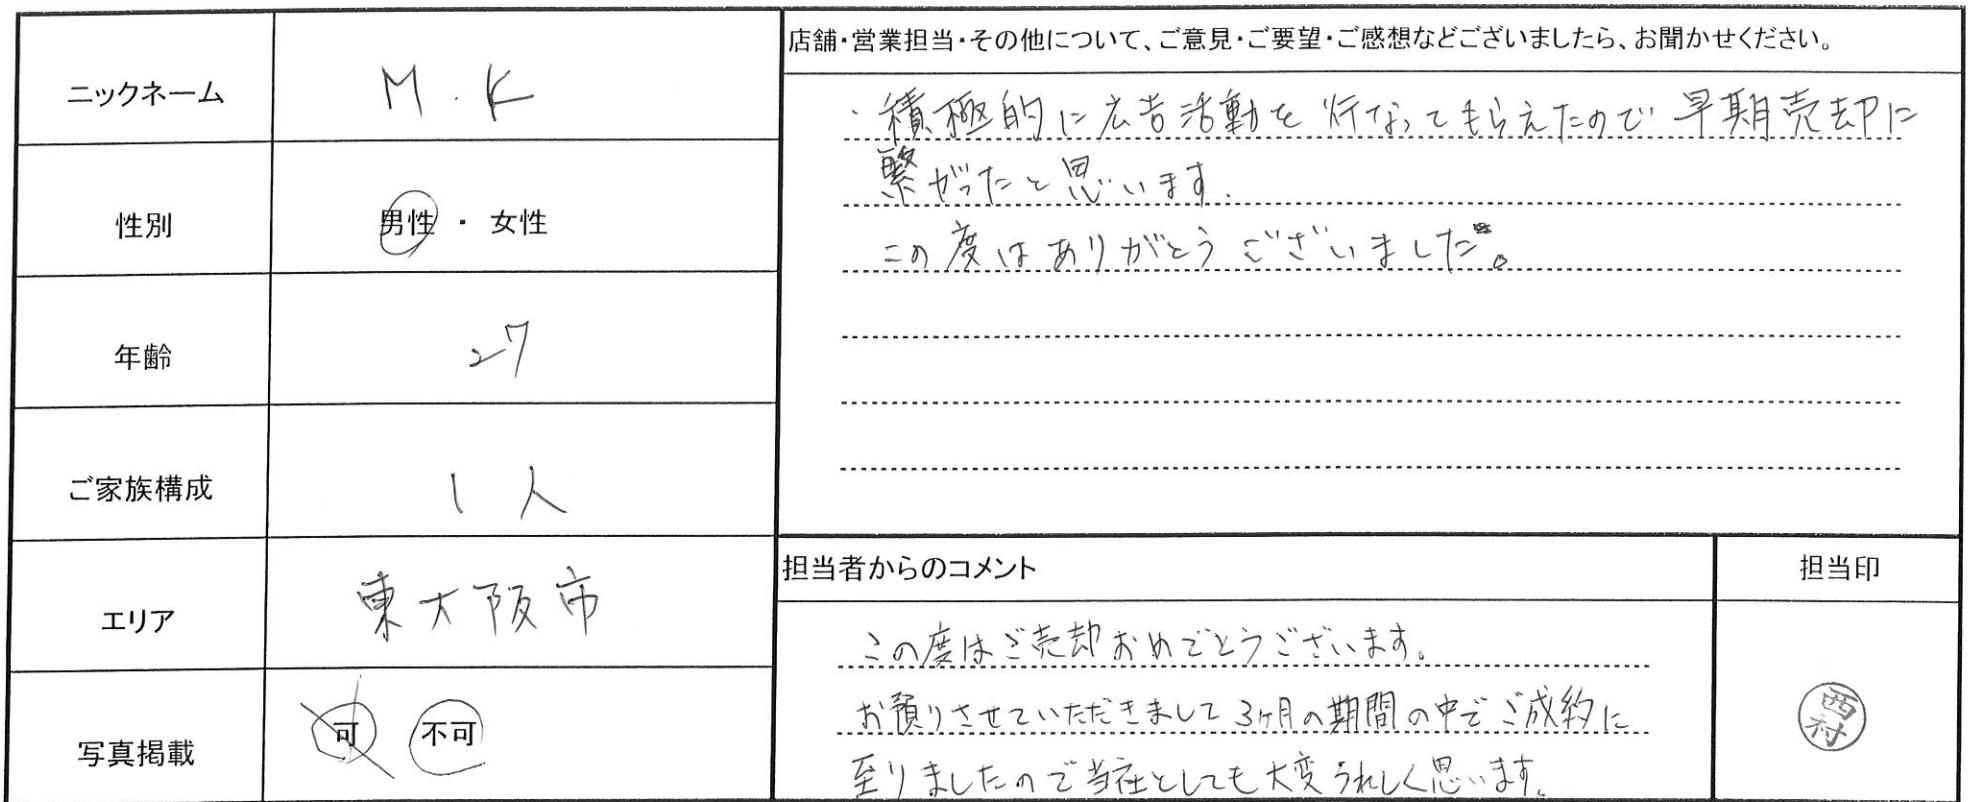 ニックネーム
M.K
性別
男性 ・ 女性
年齢
27
ご家族構成
1人
エリア
東大阪市
写真掲載
可 不可
店舗・営業担当・その他について、ご意見・ご要望・ご感想などございましたら、お聞かせください。
・積極的に広告活動を行なってもらえたので早期売却に
繋がったと思います。
この度はありがとうございました。
担当者からのコメント
この度はご売却おめでとうございます。
お預りさせていただきまして3ヶ月の期間の中でご成約に
至りましたので当社としても大変うれしく思います。
担当印
西村